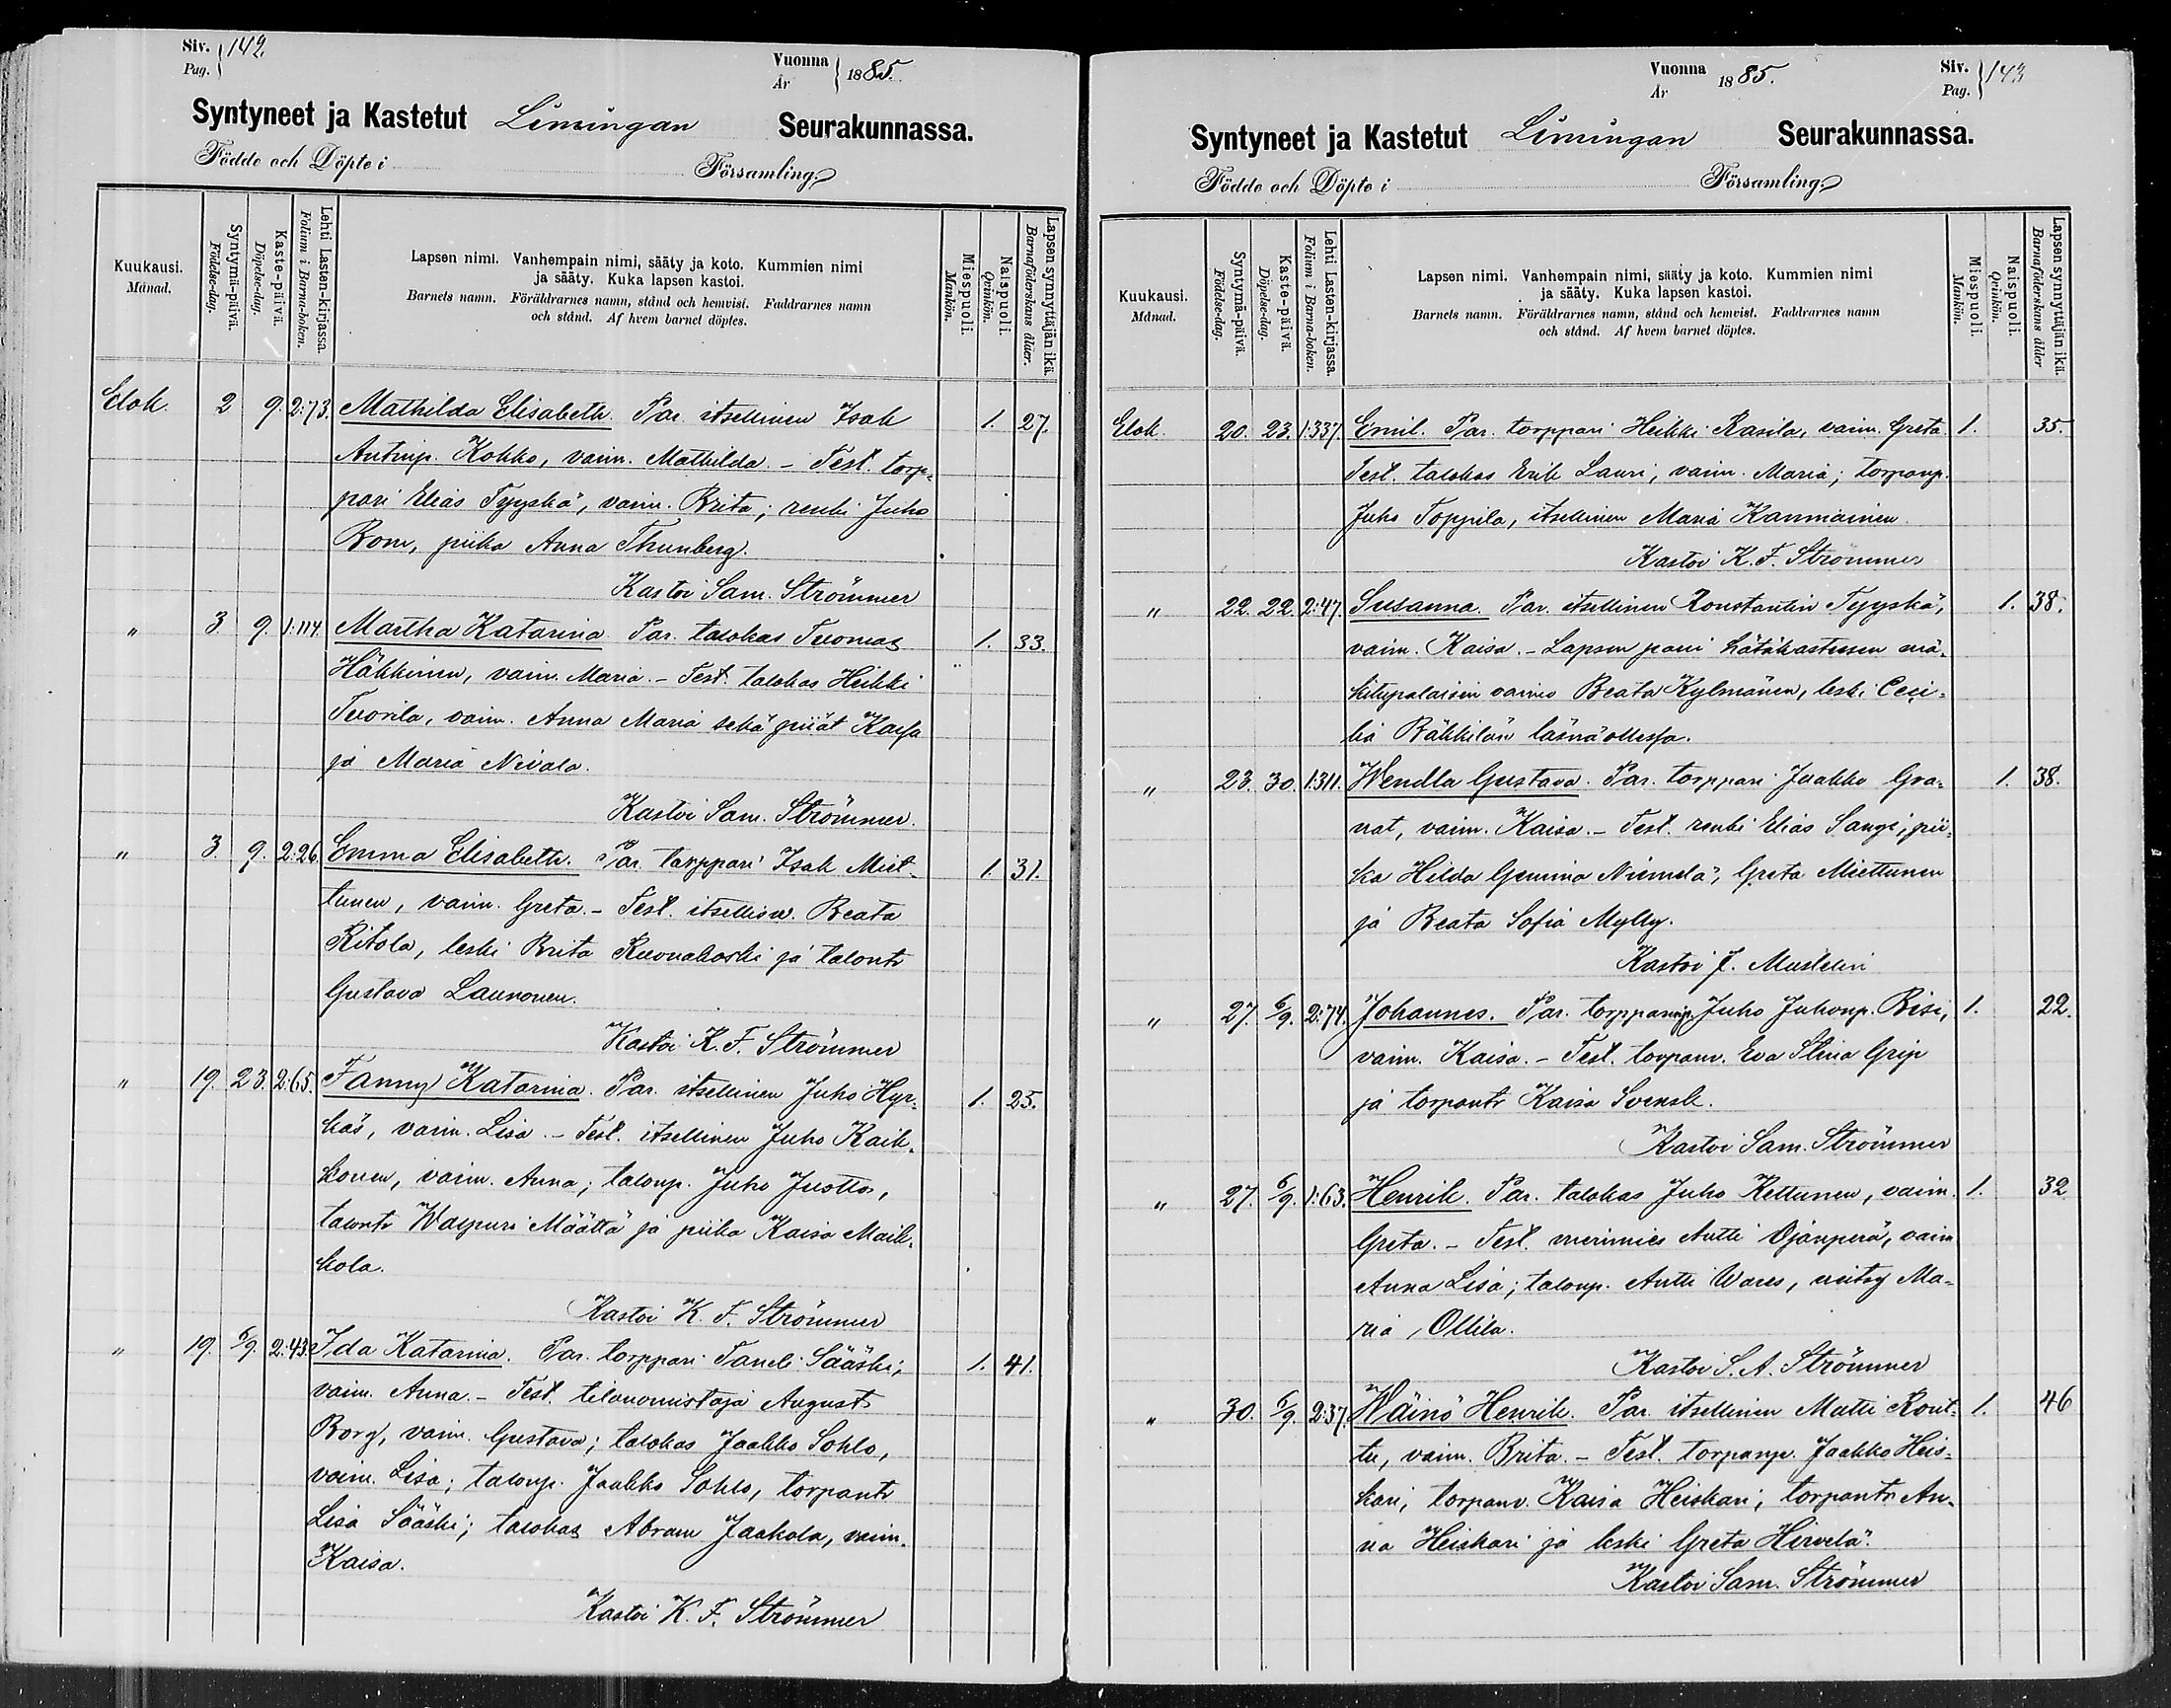 Siv. 142.
Pag.
Vuonna 1885.
År
Syntyneet ja Kastetut Limingan Seurakunnassa.
Födde och Döpte i Församling.
Kuukausi.
Månad.
Syntymä-päivä.
Födelse-dag.
Kaste-päivä.
Döpelse-dag.
Lehti Lasten-kirjassa.
Folium i Barna-boken.
Lapsen nimi. Vanhempain nimi, sääty ja koto. Kummien nimi
ja sääty. Kuka lapsen kastoi.
Barnets namn. Föräldrarnes namn, stånd och hemvist. Faddrarnes namn
och stånd. Af hvem barnet döptes.
Miespuoli.
Mankön.
Naispuoli.
Qvinkön.
Lapsen synnyttäjän ikä.
Barnaföderskans ålder.
Elok. 2 9. 2:73. Mathilda Elisabeth. Par. itsellinen Isak 1. 27.
Antinp. Kokko, vaim. Mathilda. - Test. torp-
pari Elias Tyyskä, vaim. Brita; renki Juho
Bom, piika Anna Thunberg.
Kastoi Sam. Strömmer
" 3. 9. 1:114. Martha Katarina Par. talokas Tuomas 1. 33.
Häkkinen, vaim. Maria. - Test. talokas Heikki
Tuorila, vaim. Anna Maria sekä piiat Kaisa
ja Maria Nivala.
Kastoi Sam. Strömmer.
" 3. 9. 2:26. Emma Elisabeth. Par. torppari Isak Miet- 1. 31.
tunen, vaim. Greta. - Test. itsellisv. Beata
Ritola, leski Brita Ruonakoski ja talontr
Gustava Launonen.
Kastoi K. F. Strömmer
" 19. 23. 2:65. Fanny Katarina. Par. itsellinen Juho Hyr- 1. 25.
käs, vaim. Lisa. - Test. itsellinen Juho Kaik-
konen, vaim. Anna; talonp. Juho Juotto,
talontr Walpuri Määttä ja piika Kaisa Maik-
kola.
Kastoi K. F. Strömmer
" 19. 6/9. 2:43. Ida Katarina. Par. torppari Taneli Sääski, 1. 41.
vaim. Anna. - Test. tilanomistaja August
Borg, vaim. Gustava; talokas Jaakko Sohlo,
vaim. Lisa; talonp. Jaakko Sohlo, torpantr
Lisa Sääski; talokas Abram Jaakola, vaim.
Kaisa.
Kastoi K. F. Strömmer
Vuonna 1885.
År
Siv. 143
Pag.
Syntyneet ja Kastetut Limingan Seurakunnassa.
Födde och Döpte i Församling.
Kuukausi.
Månad.
Syntymä-päivä.
Födelse-dag.
Kaste-päivä.
Döpelse-dag.
Lehti Lasten-kirjassa.
Folium i Barna-boken.
Lapsen nimi. Vanhempain nimi, sääty ja koto. Kummien nimi
ja sääty. Kuka lapsen kastoi.
Barnets namn. Föräldrarnes namn, stånd och hemvist. Faddrarnes namn
och stånd. Af hvem barnet döptes.
Miespuoli.
Mankön.
Naispuoli.
Qvinkön.
Lapsen synnyttäjän ikä.
Barnaföderskans ålder
Elok. 20. 23. 1:337. Emil. Par. torppari Heikki Rasila, vaim. Greta. 1. 35.
Test. talokas Erik Lauri, vaim. Maria; torpanp.
Juho Toppila, itsellinen Maria Kanniainen.
Kastoi K. F. Strömmer
" 22. 22. 2:47. Susanna. Par. itsellinen Konstantin Tyyskä, 1. 38.
vaim. Kaisa. - Lapsen pani hätäkasteesen mä-
kitupalaisen vaimo Beata Kylmänen, leski Ceci-
lia Räkkilän läsnäollessa.
" 23. 30. 1:311. Wendla Gustava. Par. torppari Jaakko Gra- 1. 38.
nat, vaim. Kaisa. - Test. renki Elias Sangi, pii-
ka Hilda Gemina Niemelä, Greta Miettunen
ja Beata Sofia Mylly.
Kastoi J. Mustelin
" 27. 6/9. 2:74. Johannes. Par. torpparinp. Juho Juhonp. Bisi, 1. 22.
vaim. Kaisa. - Test. torpanv. Eva Stina Grip
ja torpantr Kaisa Svensk.
Kastoi Sam. Strömmer
" 27. 6/9. 1:63. Henrik. Par. talokas Juho Kettunen, vaim. 1. 32
Greta. - Test. merimies Antti Ojanperä, vaim
Anna Lisa; talonp. Antti Wares, neitsy Ma-
ria Ollila.
Kastoi S. A. Strömmer
" 30. 6/9. 2:37. Wäinö Henrik. Par. itsellinen Matti Rout- 1. 46
tu, vaim. Brita. - Test. torpanp. Jaakko Heis-
kari, torpanv. Kaisa Heiskari, torpantr An-
na Heiskari ja leski Greta Hirvelä.
Kastoi Sam. Strömmer